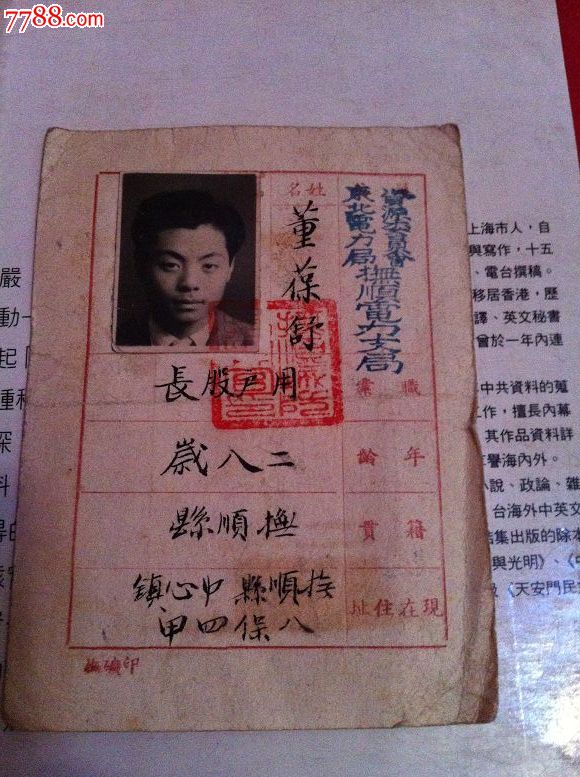 7788.com
中国收藏热线
資源委員會
東北電力局
撫順電力支局
姓名
董葆舒
職業
用戶股長
年齡
二八歲
籍貫
撫順縣
現在住址
撫順縣中心鎮
八保四甲
撫礦印
嚴
動
起
種
深
料
上海市人，自
與寫作，十五
、電台撰稿。
移居香港，歷
譯、英文秘書
曾於一年內連
中共資料的蒐
工作，擅長內幕
其作品資料詳
譽海內外。
小說、政論、雜
台海外中英文
結集出版的除本
與光明》、《
《天安門民